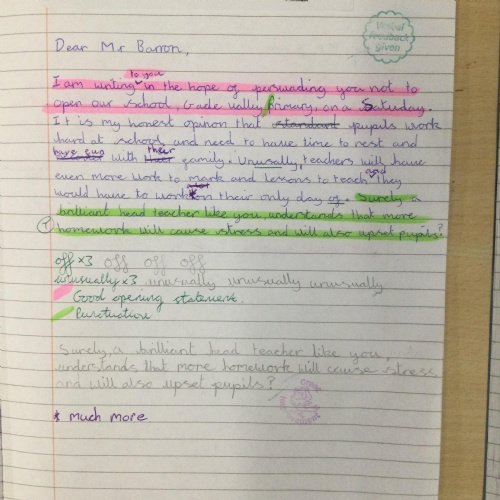 Verbal feedback given
Dear Mr Barron,
to you
I am writing in the hope of persuading you not to
open our school, Gade Valley Primary, on a Saturday.
It is my honest opinon that standard pupils work
hard at school and need to have time to rest and
have fun with their family. Unusally, teachers will have
and
even more work to mark and lessons to teach. They
would have to work * on their only day of. Surely a
brilliant head teacher like you, understands that more
homework will cause stress and will also upset pupils?
off x3 off off off
unusually x3 unusually unusually unusually
Good opening statement
Punctuation
Surely, a brilliant head teacher like you,
understands that more homework will cause stress
and will also upset pupils?
* much more